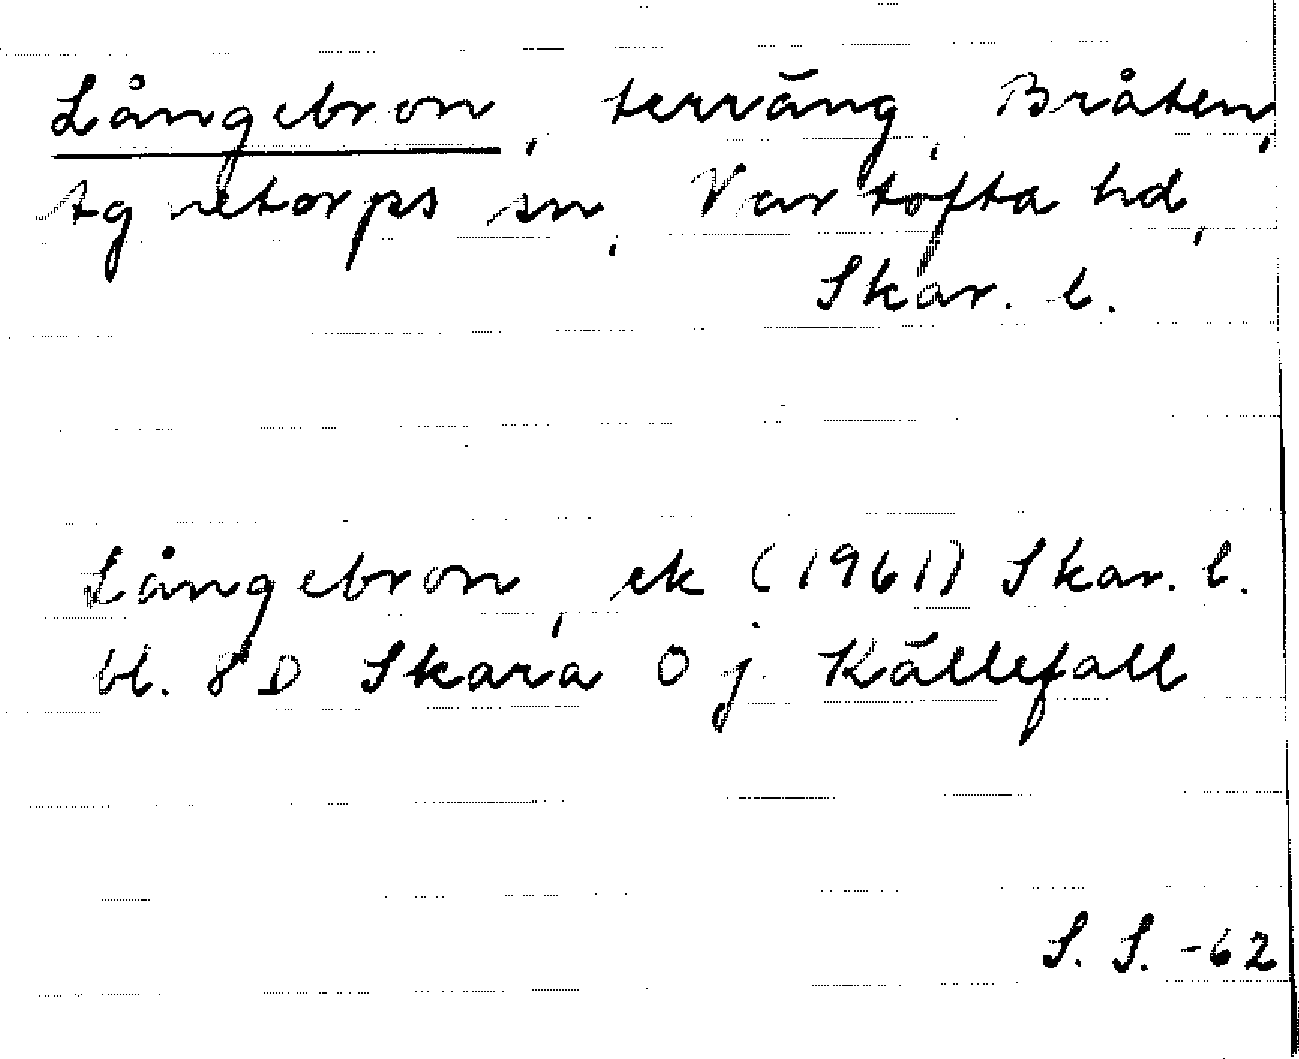 Långebron, terräng, Bråten,
Agnetorps sn, Vartofta hd,
Skar. l.
Långebron, ek (1961) Skar. l.
bl. 8 D Skara 0 j. Källefall
S. S. -62